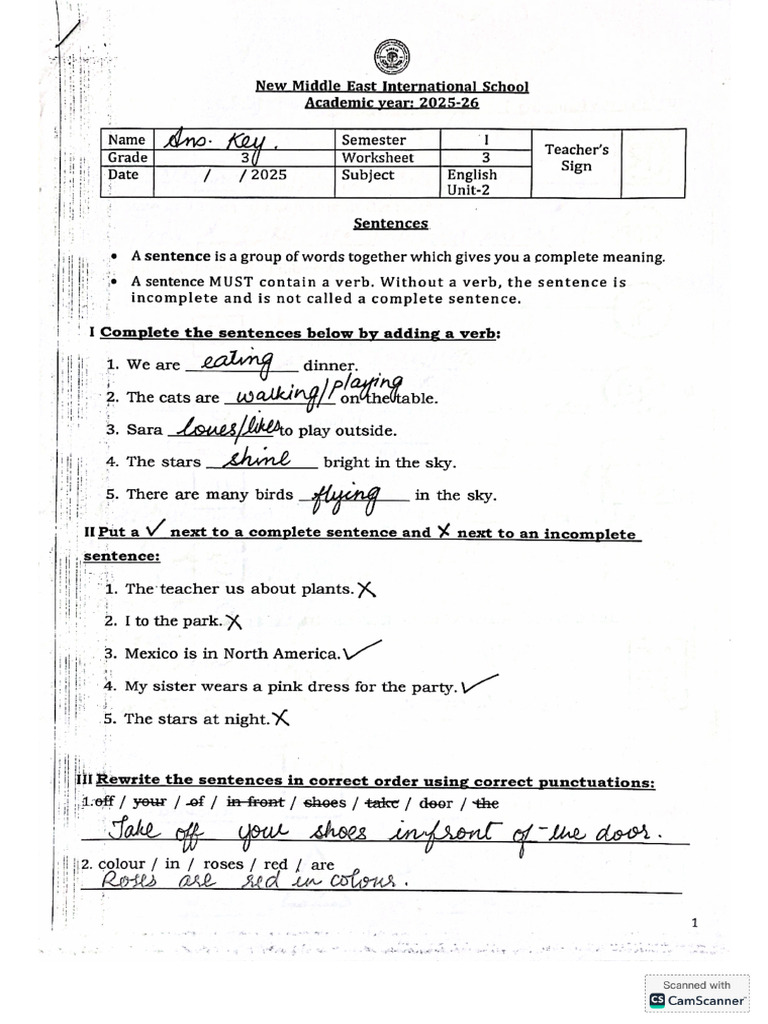 New Middle East International School
Academic year: 2025-26
Name Ans. Key. Semester I Teacher's Sign
Grade 3 Worksheet 3
Date / / 2025 Subject English Unit-2
Sentences
• A sentence is a group of words together which gives you a complete meaning.
• A sentence MUST contain a verb. Without a verb, the sentence is
incomplete and is not called a complete sentence.
I Complete the sentences below by adding a verb:
1. We are eating dinner.
2. The cats are walking/playing on the table.
3. Sara loves/likes to play outside.
4. The stars shine bright in the sky.
5. There are many birds flying in the sky.
II Put a ✓ next to a complete sentence and X next to an incomplete
sentence:
1. The teacher us about plants. X
2. I to the park. X
3. Mexico is in North America. ✓
4. My sister wears a pink dress for the party. ✓
5. The stars at night. X
III Rewrite the sentences in correct order using correct punctuations:
1. off / your / of / in front / shoes / take / door / the
Take off your shoes infront of the door.
2. colour / in / roses / red / are
Roses are red in colour.
1
Scanned with
CS CamScanner